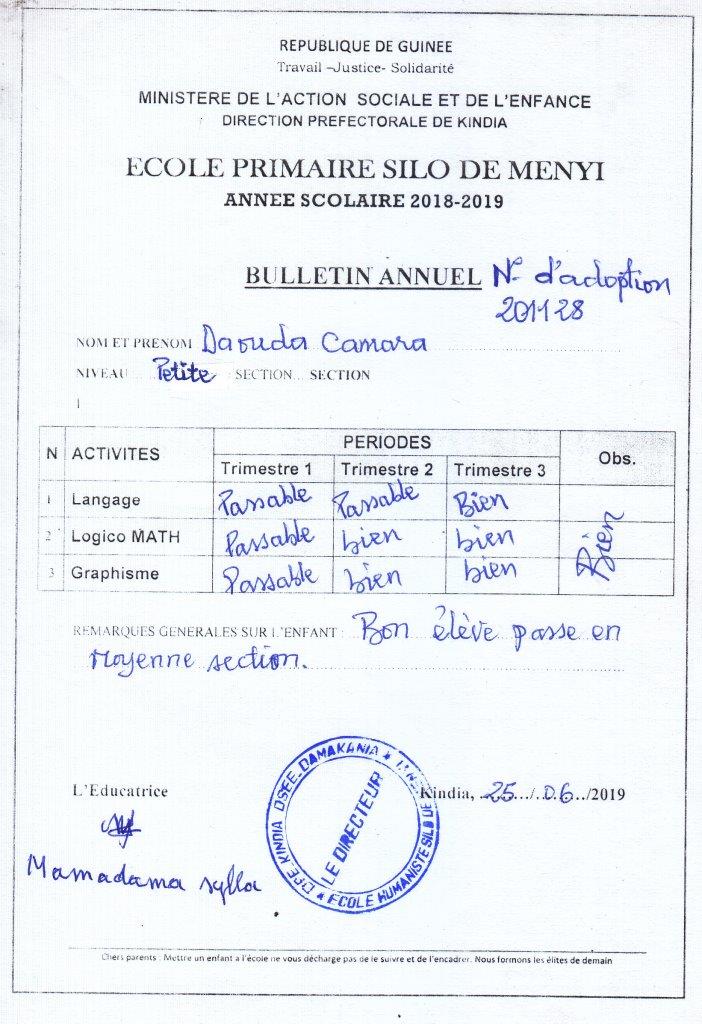 REPUBLIQUE DE GUINEE
Travail –Justice- Solidarité
MINISTERE DE L'ACTION SOCIALE ET DE L'ENFANCE
DIRECTION PREFECTORALE DE KINDIA
ECOLE PRIMAIRE SILO DE MENYI
ANNEE SCOLAIRE 2018-2019
BULLETIN ANNUEL N° d'adoption
201128
NOM ET PRENOM Daouda Camara
NIVEAU Petite SECTION... SECTION
N ACTIVITES PERIODES Obs.
Trimestre 1 Trimestre 2 Trimestre 3
1 Langage Passable Passable Bien
2 Logico MATH Passable bien bien Bien
3 Graphisme Passable bien bien
REMARQUES GENERALES SUR L'ENFANT : Bon élève passe en
moyenne section.
L'Educatrice Kindia, 25/06/2019
Mamadama sylla
DPE KINDIA DSEE DAMAKANIA
ECOLE HUMANISTE SILO DE
LE DIRECTEUR
Chers parents : Mettre un enfant a l'école ne vous décharge pas de le suivre et de l'encadrer. Nous formons les élites de demain